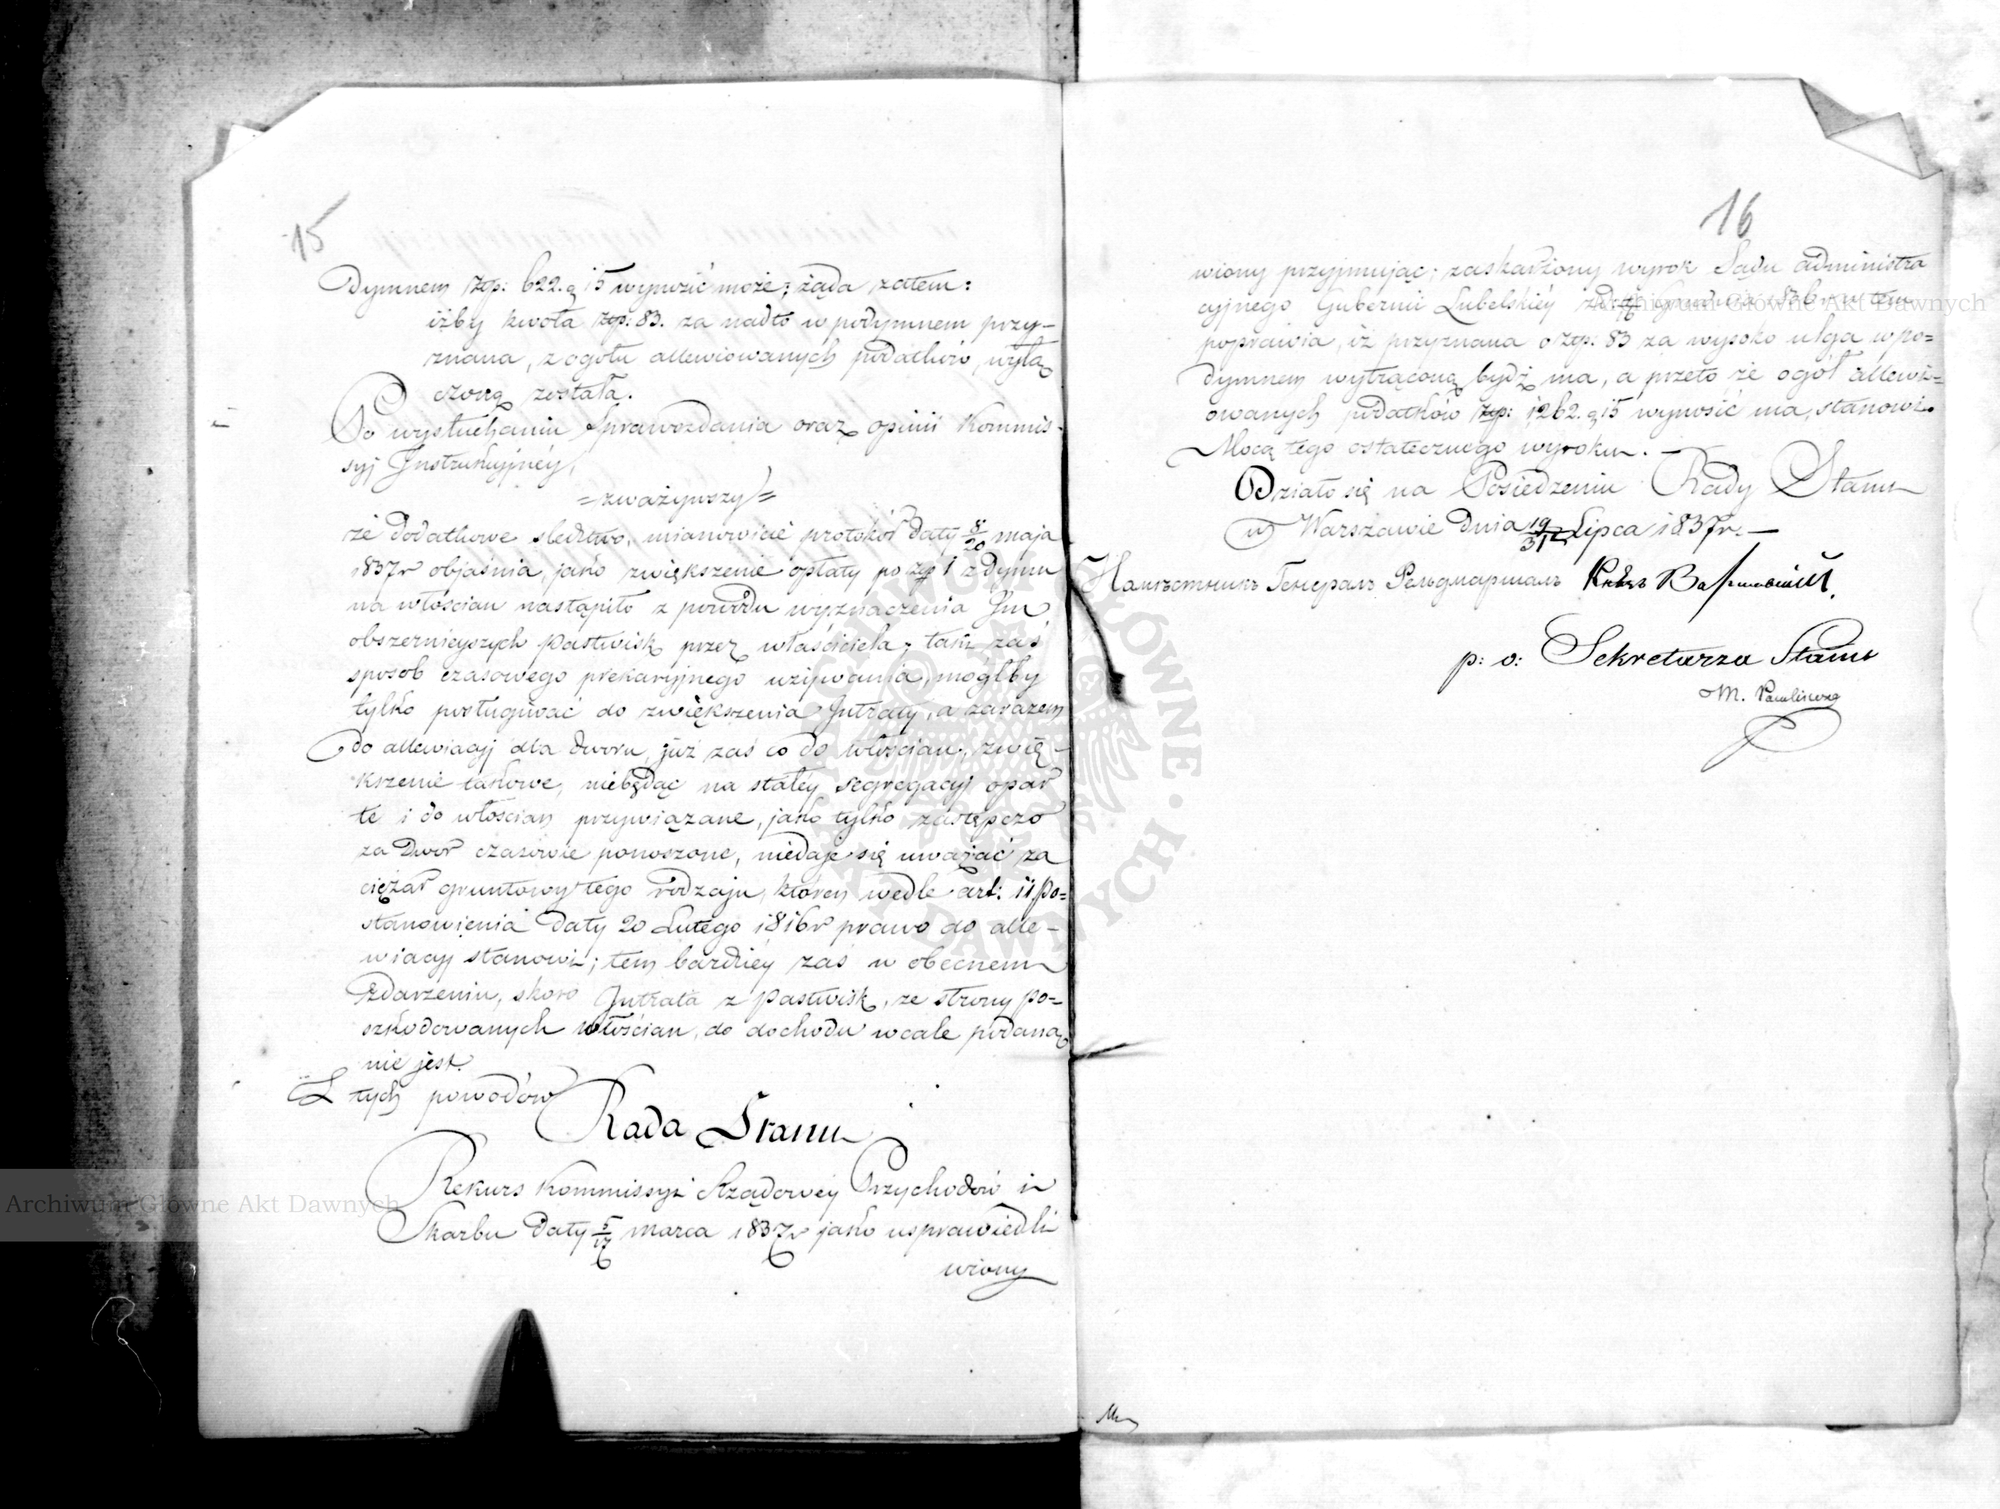 15
Dymnem złp: 622. g 15 wynosić może; żąda zatem:
iżby kwota złp: 83. za nadto w podymnem przy-
znana, z ogółu allewiowanych podatków, wyłą
czoną została.
Po wysłuchaniu Sprawozdania oraz opinii Kommis-
syj Instrukcyjnéy,
=zważywszy=
że dodatkowe śledztwo, mianowicie protokół daty 8/20 maja
1837 r objaśnia, jako zwiększenie opłaty po złp 1 z dymu
na włościan nastąpiło z powodu wyznaczenia Im
obszernieyszych pastwisk przez właściciela; taki zaś
sposób czasowego prekaryjnego używania, mógłby
tylko posługiwać do zwiększenia Intraty, a zarazem
do allewiacyj dla dworu, już zaś co do włościan, zwię-
kszenie takowe, niebędąc na stałéy segregacyj opar
te i do włościan przywiązane, jako tylko zastępczo
za Dwór czasowie ponoszone, niedaje się uważać za
ciężar gruntowy tego rodzaju, któren wedle art: 11. po=
stanowienia daty 20 Lutego 1816 r prawo do alle-
wiacyj stanowi; tem bardziéy zaś w obecnem
zdarzeniu, skoro Intrata z pastwisk, ze strony po=
szkodowanych włościan, do dochodu wcale podaną
nie jest.
Z tych powodów
Rada Stanu
Rekurs Kommissyi Rządowéy Przychodów i
Skarbu daty 5/17 marca 1837 r jako usprawiedli
wiony
16
wiony przyjmując; zaskarżony wyrok Sądu administra
cyjnego Gubernii Lubelskiéy z d. grudnia 1836 r w tem
poprawia, iż przyznana o złp: 83 za wysoko ulga w po=
dymnem wytrąconą bydź ma, a przeto że ogół allewi=
owanych podatków złp: 1262. g 15 wynosić ma, stanowi.
Mocą tego ostatecznego wyroku. —
Działo się na Posiedzeniu Rady Stanu
w Warszawie dnia 19/31 Lipca 1837 r. —
Намѣстникъ Генералъ Фельдмаршалъ Князь Варшавскій.
p: o: Sekretarza Stanu
M. Pawliszczew
Archiwum Główne Akt Dawnych
Archiwum Główne Akt Dawnych
ARCHIWUM GŁÓWNE AKT DAWNYCH